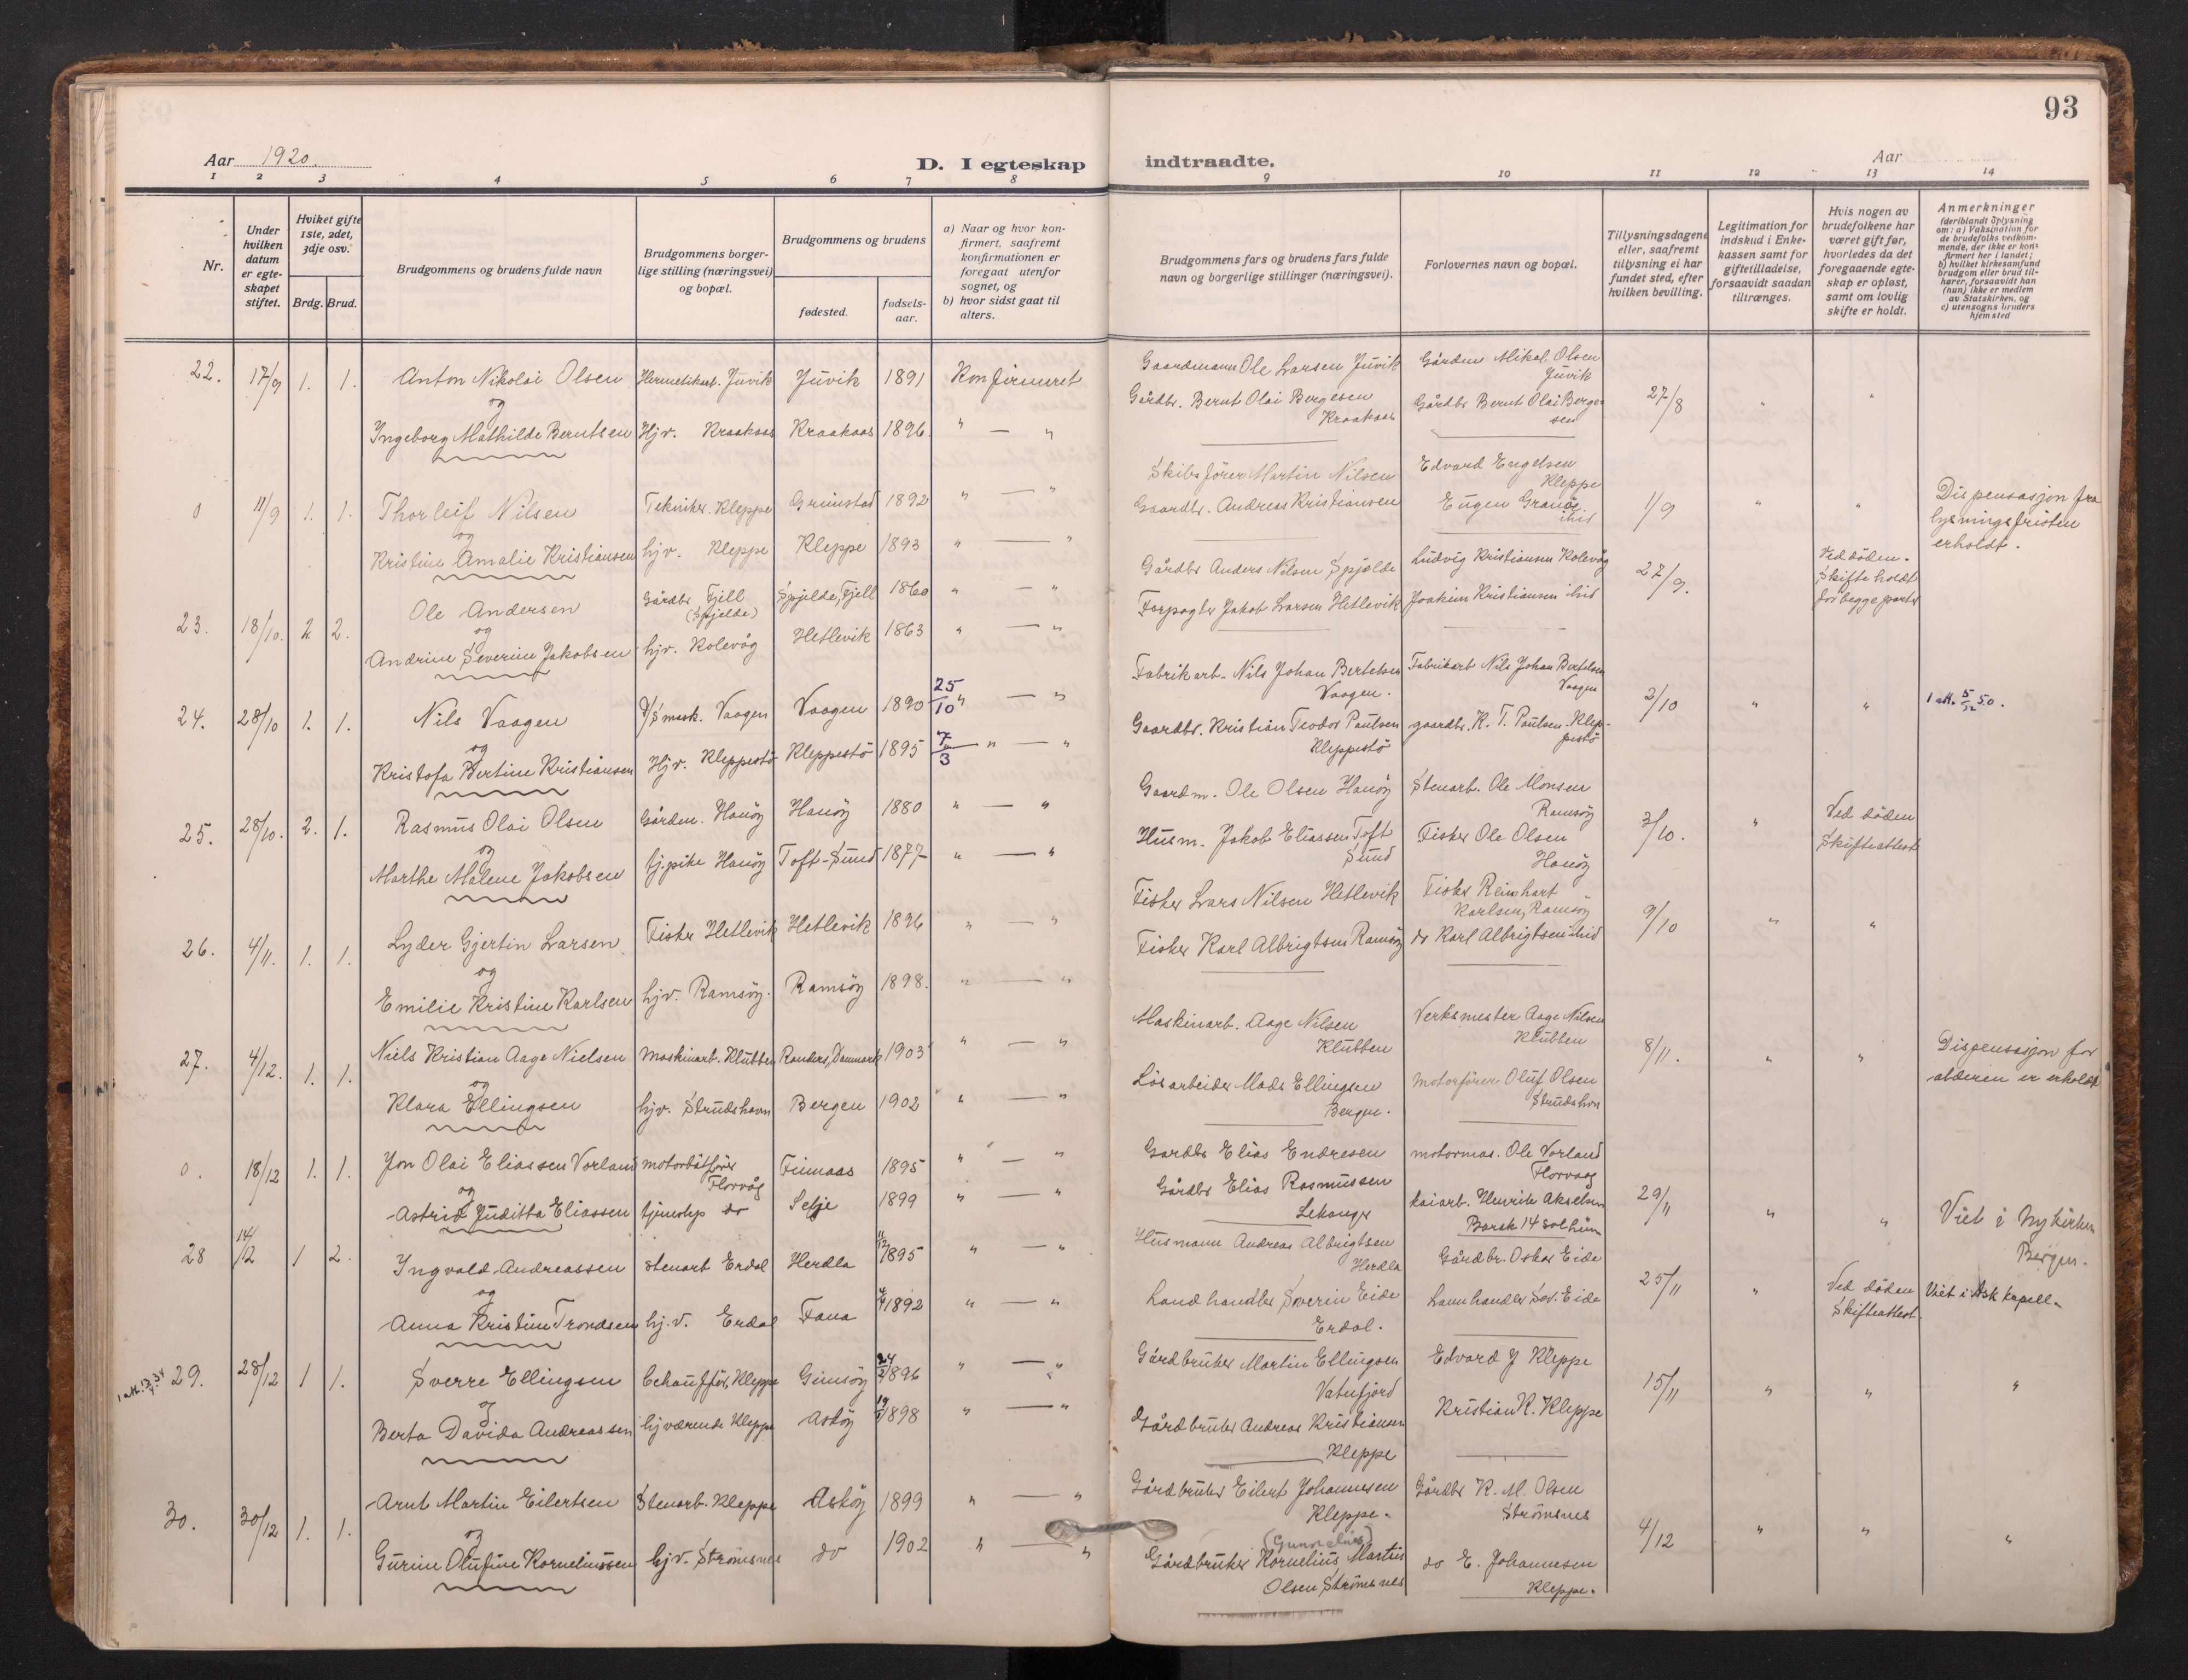 93
Aar 1920.
D. I egteskap indtraadte.
Aar
1 2 3 4 5 6 7 8 9 10 11 12 13 14
Nr.
Under hvilken datum er egteskapet stiftet.
Hviket gifte 1ste, 2det, 3dje osv.
Brdg. Brud.
Brudgommens og brudens fulde navn
Brudgommens borgerlige stilling (næringsvei) og bopæl.
Brudgommens og brudens
fødested.
fødselsaar.
a) Naar og hvor konfirmert, saafremt konfirmationen er foregaat utenfor sognet, og
b) hvor sidst gaat til alters.
Brudgommens fars og brudens fars fulde navn og borgerlige stillinger (næringsvei).
Forlovernes navn og bopæl.
Tillysningsdagene eller, saafremt tillysning ei har fundet sted, efter hvilken bevilling.
Legitimation for indskud i Enkekassen samt for giftetilladelse, forsaavidt saadan tiltrænges.
Hvis nogen av brudefolkene har været gift før, hvorledes da det foregaaende egteskap er opløst, samt om lovlig skifte er holdt.
Anmerkninger
(deriblandt oplysning om: a) Vaksination for de brudefolks vedkommende, der ikke er konfirmert her i landet; b) hvilket kirkesamfund brudgom eller brud tilhører, forsaavidt han (hun) ikke er medlem av Statskirken, og c) utensogns bruders hjemsted
22. 17/9 1. 1. Anton Nikolai Olsen Hermetikarb. Juvik Juvik 1891 Konfirmeret Gaardmann Ole Larsen Juvik Gårdm Mikal Olsen Juvik 27/8 " "
og
Ingeborg Mathilde Berntsen Hjv. Kraakaas Kraakaas 1896. " — " Gårdbr. Bernt Olai Bergesen Kraakaas Gårdbr Bernt Olai Bergesen
0 11/9 1. 1. Thorleif Nilsen Tekniker. Kleppe Grimstad 1892 " — " Skibsfører Martin Nilsen Edvard Engelsen Kleppe 1/9 " " Dispensasjon fra lysningsfristen erholdt.
og
Kristine Amalie Kristiansen hjv. Kleppe Kleppe 1893 " — " Gaardbr. Andreas Kristiansen Eugen Granøe ibid
23. 18/10. 2 2. Ole Andersen Gårdbr Fjell (Spjelde) Spjelde, Fjell 1860 " — " Gårdbr Anders Nilsen Spjelde Ludvig Kristiansen Kolevåg 27/9. Ved døden. Skifte holdt for begge parter
og
Andrine Severine Jakobsen hjv. Kolevåg Hetlevik 1863 " — " Forpagter Jakob Larsen Hetlevik Joakim Kristiansen ibid
24. 28/10 1. 1. Nils Vaagen D/S mask. Vaagen Vaagen 1890 25/10 " — " Fabrikarb. Nils Johan Bertelsen Vaagen. Fabrikarb Nils Johan Bertelsen Vaagen 3/10 " " 1 att. 5/12 50.
og
Kristofa Bertine Kristiansen Hjv. Kleppestö Kleppestö 1895 7/3 " — " Gaardbr. Kristian Teodor Paulsen Kleppestö gaardbr. K. T. Paulsen. Kleppestö
25. 28/10. 2. 1. Rasmus Olai Olsen Gårdm. Hanöy Hanöy 1880 " — " Gaardm. Ole Olsen Hanöy Stenarb. Ole Monsen Ramsöy 3/10. " Ved døden Skifteattest
og
Marthe Malene Jakobsen tj.pike Hanöy Toft-Sund 1877 " — " Husm. Jakob Eliassen Toft Sund Fisker Ole Olsen Hanöy
26. 4/11. 1. 1. Lyder Gjertin Larsen Fisker Hetlevik Hetlevik 1896 " — " Fisker Lars Nilsen Hetlevik Fisker Reinhart Karlsen, Ramsöy 9/10 " "
og
Emilie Kristine Karlsen hjv. Ramsöy. Ramsöy 1898. " — " Fisker Karl Albrigtsen Ramsöy do Karl Albrigtsen ibid
27. 4/12. 1. 1. Niels Kristian Aage Nielsen Maskinarb. Klubben Randers, Danmark 1903 " — " Maskinarb. Aage Nilsen Klubben Verksmester Aage Nilsen Klubben 8/11. " " Dispensasjon for alderen er erholdt
og
Klara Ellingsen hjv. Strudshavn Bergen 1902 " — " Lösarbeider Mads Ellingsen Bergen. Motorförer Oluf Olsen Strudshvn
0. 18/12 1. 1. Jon Olai Eliassen Vorland motorbåtförer Florvåg Finnaas 1895 " — " Gardbr Elias Endresen motormas. Ole Vorland Florvaag 29/11 " " Viet i Nykirken Bergen.
og
Astrid Juditta Eliassen tjenestep do Selje 1899 " — " Gårdbr Elias Rasmussen Lekanger kaiarb. Henrik Akselsen Barsk 14 Solheim
28 14/12 1 2. Ingvald Andreassen stenarb Erdal Herdla 11/12 1895 " — " Husmann Andreas Albrigtsen Herdla Gårdbr. Oskar Eide 25/11 " Ved døden Skifteattest. Viet i Ask kapell.
og
Anna Kristine Trondsen hj.v. Erdal Fana 1892 " — " Landhandler Severin Eide Erdal. Lannhandler Sev. Eide
29. 28/12 1 1. Sverre Ellingsen Cchaufför, Kleppe Gimsöy 24/2 1896 " — " Gårdbruker Martin Ellingsen Vatnfjord Edvard J Kleppe 15/11 " " "
og
Berta Davida Andreassen hjværende Kleppe Asköy 1898 " — " Gårdbruker Andreas Kristiansen Kleppe Kristian K. Kleppe
30. 30/12 1. 1. Arnt Martin Eilertsen Stenarb. Kleppe Asköy 1899 " — " Gårdbruker Eilert Johannesen Kleppe. Gårdbr K. M. Olsen Strömsnes 4/12 " " "
og
Gurine Olufine Korneliussen hjv. Strömsnes do 1902 " — " Gårdbruker Kornelius Martin Olsen Strömsnes do E. Johannesen Kleppe.